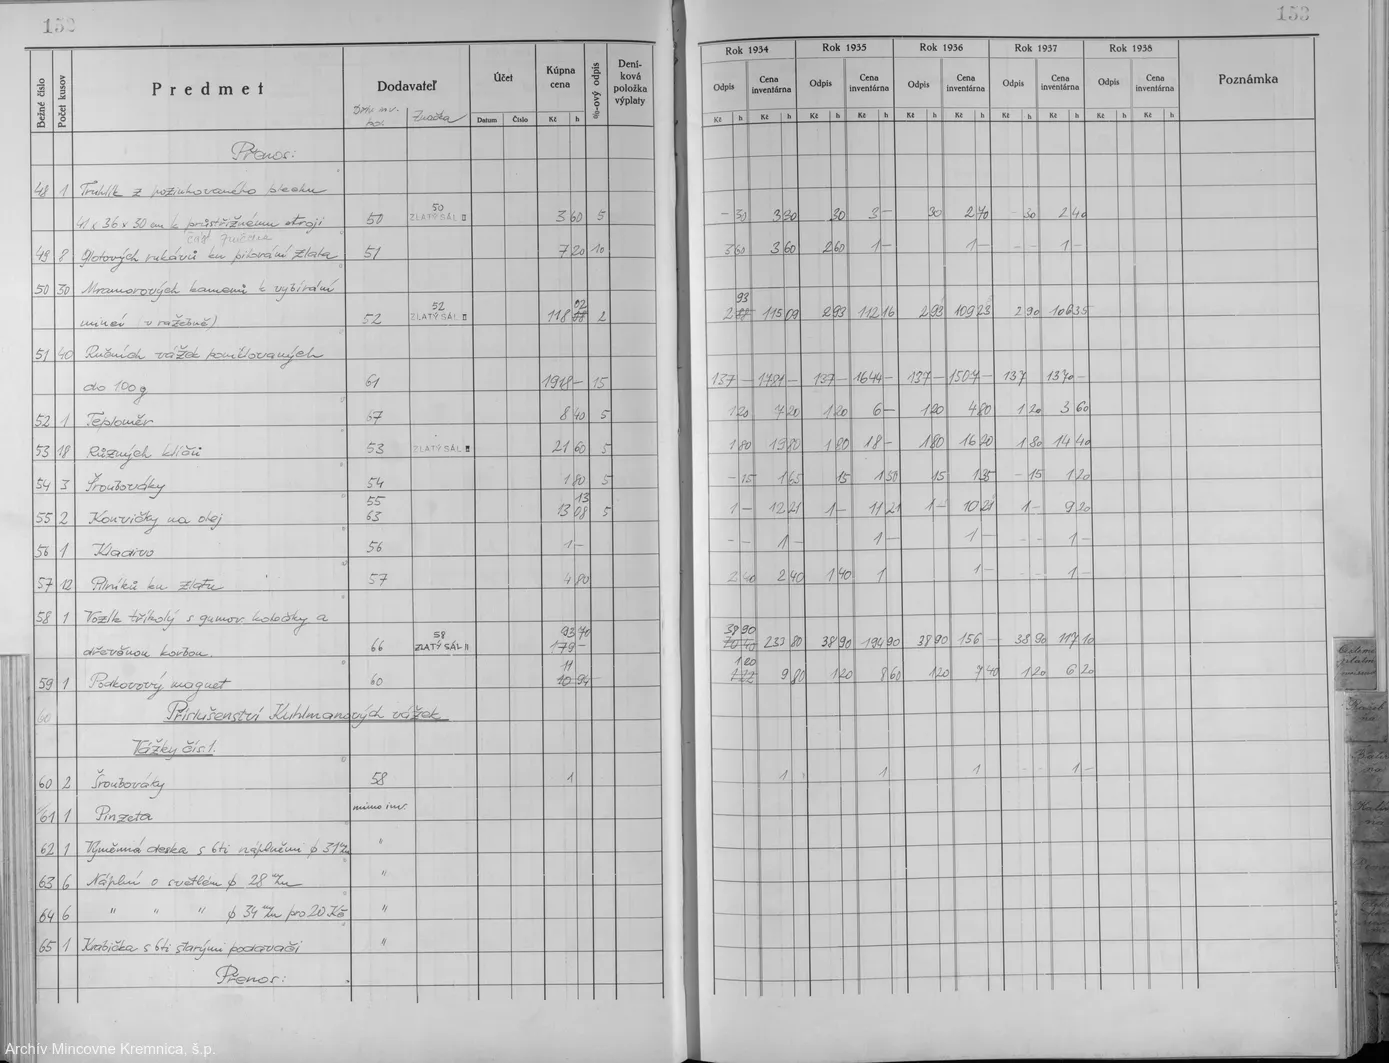 152
Bežné číslo Počet kusov Predmet Dodavateľ Účet Datum Číslo Kúpna cena Kč h %-ový odpis Deníková položka výplaty
Značka
Přenos:
48 1 Truhlík z pozinkovaného plechu
41 x 36 x 30 cm k průstřižnému stroji 50 50 ZLATÝ SÁL II 3 60 5
49 8 Glotových rukávů ku pilování zlata 51 7 20 10
50 30 Mramorových kamenů k vybírání
mincí (v ražebně) 52 52 ZLATÝ SÁL II 118 02 2
51 40 Ručních vážek poniklovaných
do 100 g 61 1918 — 15
52 1 Teploměr 67 8 40 5
53 18 Různých klíčů 53 ZLATÝ SÁL II 21 60 5
54 3 Šroubováky 54 1 80 5
55 2 Konvičky na olej 55 63 13 13 08 5
56 1 Kladivo 56 1 —
57 12 Pilníků ku zlatu 57 4 80
58 1 Vozík tříkolý s gumov. kolečky a
dřevěnou korbou 66 58 ZLATÝ SÁL II 93 70 179 —
59 1 Podkovový magnet 60 11 10 94
60 Příslušenství Kuhlmanových vážek
Vážky čís 1.
60 2 Šroubováky 58 1
61 1 Pinzeta mimo inv.
62 1 Výměnná deska s 6ti náplněmi ϕ 31 m/m "
63 6 Náplní o světlém ϕ 28 m/m "
64 6 " " " ϕ 34 m/m pro 20 Kč "
65 1 Krabička s 6ti starými podavači "
Přenos:
153
Rok 1934 Rok 1935 Rok 1936 Rok 1937 Rok 1938 Poznámka
Odpis Cena inventárna Odpis Cena inventárna Odpis Cena inventárna Odpis Cena inventárna Odpis Cena inventárna
Kč h Kč h Kč h Kč h Kč h Kč h Kč h Kč h Kč h Kč h
— 30 3 30 30 3 — 30 2 70 — 30 2 40
3 60 3 60 2 60 1 — 1 — - - 1 —
93
2 115 09 2 93 112 16 2 93 109 23 2 90 106 35
137 — 1781 — 137 — 1644 — 137 — 1507 — 137 1370 —
1 20 7 20 1 20 6 — 1 20 4 80 1 20 3 60
1 80 19 80 1 80 18 — 1 80 16 20 1 80 14 40
— 15 1 65 15 1 50 15 1 35 — 15 1 20
1 — 12 21 1 — 11 21 1 — 10 21 1 — 9 20
- - 1 — 1 — 1 — - - 1 —
2 40 2 40 1 40 1 1 — - - 1 —
38 90
233 80 38 90 194 90 38 90 156 — 38 90 117 10
1 20
9 80 1 20 8 60 1 20 7 40 1 20 6 20
1 1 1 1 —
Archív Mincovne Kremnica, š.p.